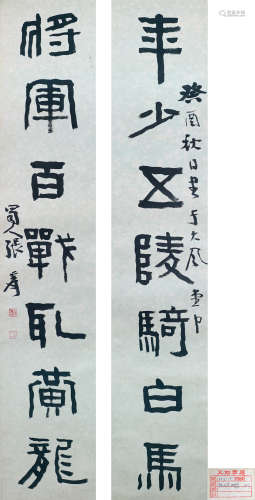 癸酉秋日書于大風堂中
年少五陵騎白馬
將軍百戰取黃龍
蜀人張爰